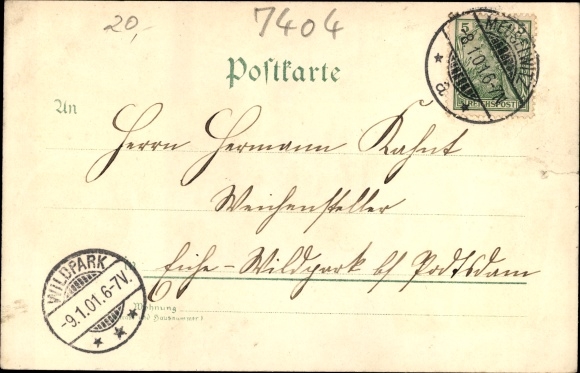 20,-
7404
Postkarte
5
REICHSPOST
8.1.01.6-7
a
An
Herrn Hermann Kahnt
Weichensteller
Eiche-Wildpark b/ Podtsdam
WILDPARK
-9.1.01.6-7V.
Wohnung
und Hausnummer